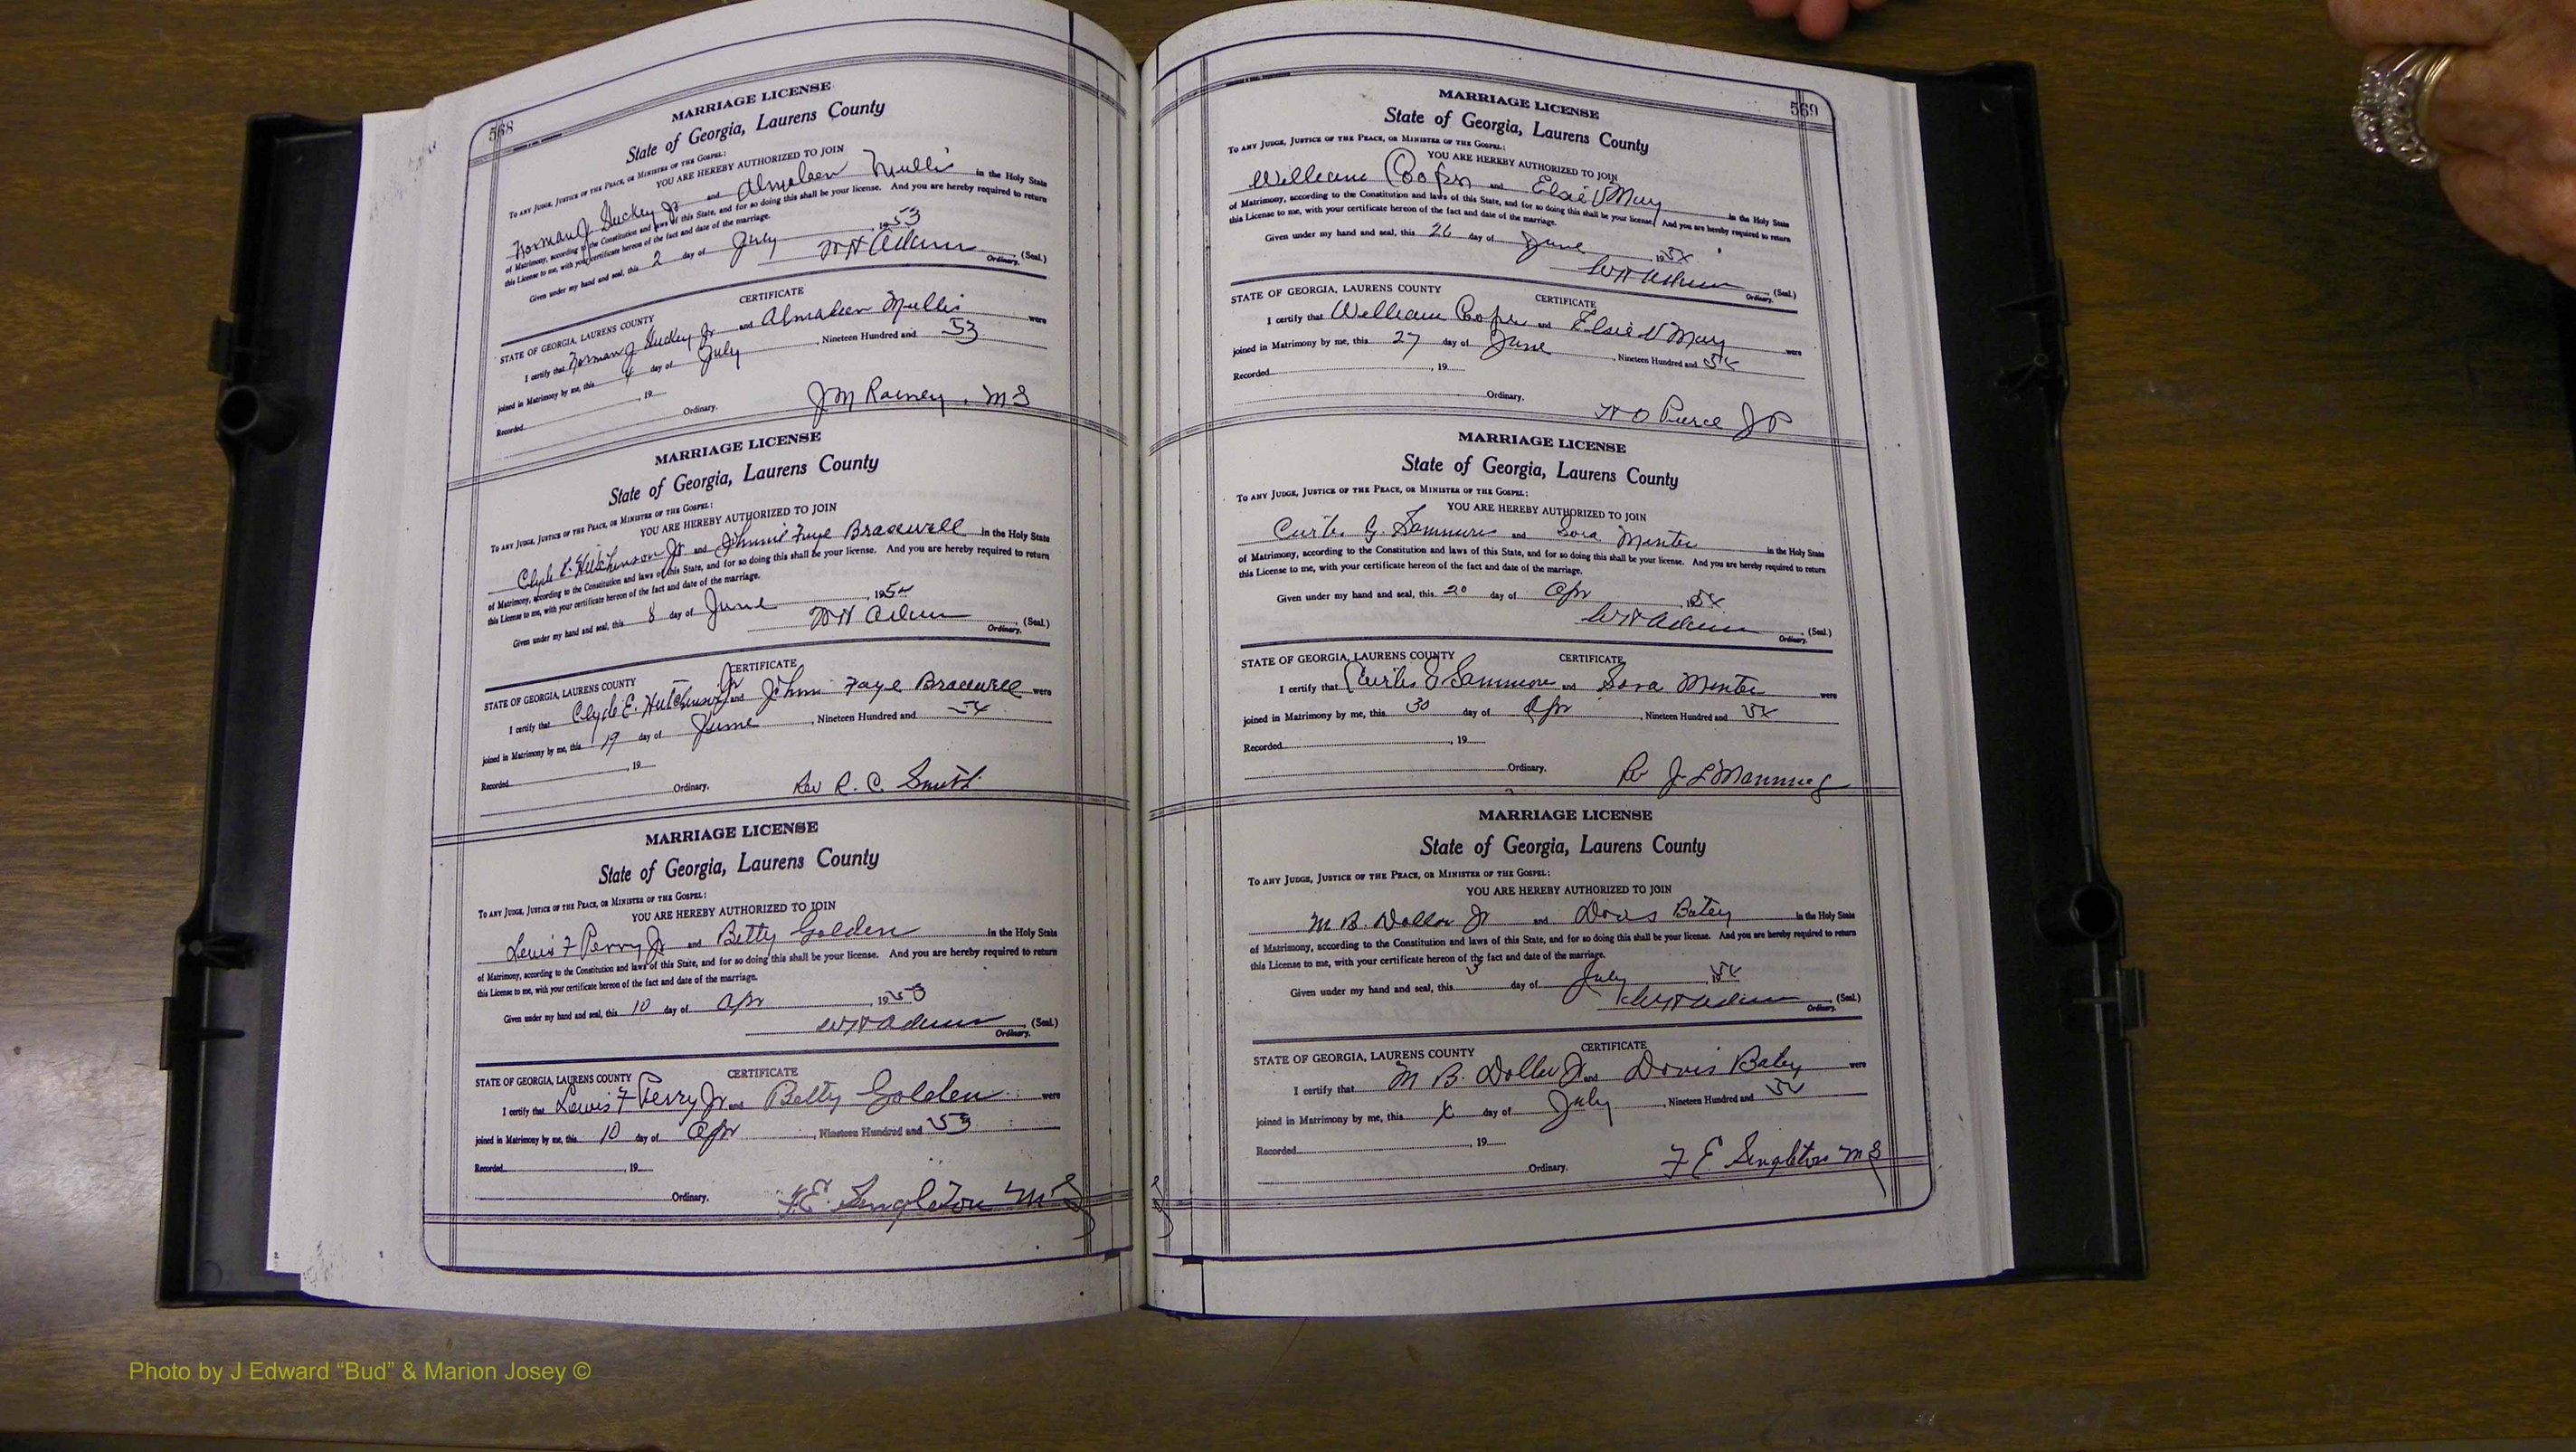 568
MARRIAGE LICENSE
State of Georgia, Laurens County
TO ANY JUDGE, JUSTICE OF THE PEACE, OR MINISTER OF THE GOSPEL:
YOU ARE HEREBY AUTHORIZED TO JOIN
Norman J Huckey Jr and Almaleen Mullis in the Holy State
of Matrimony, according to the Constitution and laws of this State, and for so doing this shall be your license. And you are hereby required to return
this License to me, with your certificate hereon of the fact and date of the marriage.
Given under my hand and seal, this 2 day of July, 1953
W H Adams (Seal.)
Ordinary.
CERTIFICATE
STATE OF GEORGIA, LAURENS COUNTY
I certify that Norman J Huckey Jr and Almaleen Mullis were
joined in Matrimony by me, this 4 day of July, Nineteen Hundred and 53
Recorded, 19
Ordinary. J M Rainey, M G
MARRIAGE LICENSE
State of Georgia, Laurens County
TO ANY JUDGE, JUSTICE OF THE PEACE, OR MINISTER OF THE GOSPEL:
YOU ARE HEREBY AUTHORIZED TO JOIN
Clyde E. Hutchinson Jr and Johnnie Faye Bracewell in the Holy State
of Matrimony, according to the Constitution and laws of this State, and for so doing this shall be your license. And you are hereby required to return
this License to me, with your certificate hereon of the fact and date of the marriage.
Given under my hand and seal, this 8 day of June, 1954
W H Adams (Seal.)
Ordinary.
CERTIFICATE
STATE OF GEORGIA, LAURENS COUNTY
I certify that Clyde E. Hutchinson Jr and Johnni Faye Bracewell were
joined in Matrimony by me, this 19 day of June, Nineteen Hundred and 54
Recorded, 19
Ordinary. Rev R. C. Smith
MARRIAGE LICENSE
State of Georgia, Laurens County
TO ANY JUDGE, JUSTICE OF THE PEACE, OR MINISTER OF THE GOSPEL:
YOU ARE HEREBY AUTHORIZED TO JOIN
Lewis F Perry Jr and Betty Golden in the Holy State
of Matrimony, according to the Constitution and laws of this State, and for so doing this shall be your license. And you are hereby required to return
this License to me, with your certificate hereon of the fact and date of the marriage.
Given under my hand and seal, this 10 day of Apr, 1953
W H Adams (Seal.)
Ordinary.
CERTIFICATE
STATE OF GEORGIA, LAURENS COUNTY
I certify that Lewis F Perry Jr and Betty Golden were
joined in Matrimony by me, this 10 day of Apr, Nineteen Hundred and 53
Recorded, 19
Ordinary. F. E. Singleton M G
569
MARRIAGE LICENSE
State of Georgia, Laurens County
TO ANY JUDGE, JUSTICE OF THE PEACE, OR MINISTER OF THE GOSPEL:
YOU ARE HEREBY AUTHORIZED TO JOIN
William Cooper and Elsie V May in the Holy State
of Matrimony, according to the Constitution and laws of this State, and for so doing this shall be your license. And you are hereby required to return
this License to me, with your certificate hereon of the fact and date of the marriage.
Given under my hand and seal, this 26 day of June, 1954
W H Adams (Seal.)
Ordinary.
STATE OF GEORGIA, LAURENS COUNTY CERTIFICATE
I certify that William Cooper and Elsie V May were
joined in Matrimony by me, this 27 day of June, Nineteen Hundred and 54
Recorded, 19
Ordinary. W O Pierce J P
MARRIAGE LICENSE
State of Georgia, Laurens County
TO ANY JUDGE, JUSTICE OF THE PEACE, OR MINISTER OF THE GOSPEL:
YOU ARE HEREBY AUTHORIZED TO JOIN
Curtis G. Sammons and Sora Minter in the Holy State
of Matrimony, according to the Constitution and laws of this State, and for so doing this shall be your license. And you are hereby required to return
this License to me, with your certificate hereon of the fact and date of the marriage.
Given under my hand and seal, this 20 day of Apr, 1954
W H Adams (Seal.)
Ordinary.
STATE OF GEORGIA, LAURENS COUNTY CERTIFICATE
I certify that Curtis G Sammons and Sora Minter were
joined in Matrimony by me, this 30 day of Apr, Nineteen Hundred and 54
Recorded, 19
Ordinary. Rv J. L Manning
MARRIAGE LICENSE
State of Georgia, Laurens County
TO ANY JUDGE, JUSTICE OF THE PEACE, OR MINISTER OF THE GOSPEL:
YOU ARE HEREBY AUTHORIZED TO JOIN
M. B. Dollar Jr and Doris Batey in the Holy State
of Matrimony, according to the Constitution and laws of this State, and for so doing this shall be your license. And you are hereby required to return
this License to me, with your certificate hereon of the fact and date of the marriage.
Given under my hand and seal, this 3 day of July, 1954
W H Adams (Seal.)
Ordinary.
STATE OF GEORGIA, LAURENS COUNTY CERTIFICATE
I certify that M B. Dollar Jr and Doris Batey were
joined in Matrimony by me, this 4 day of July, Nineteen Hundred and 54
Recorded, 19
Ordinary. F E Singleton M G
Photo by J Edward “Bud” & Marion Josey ©